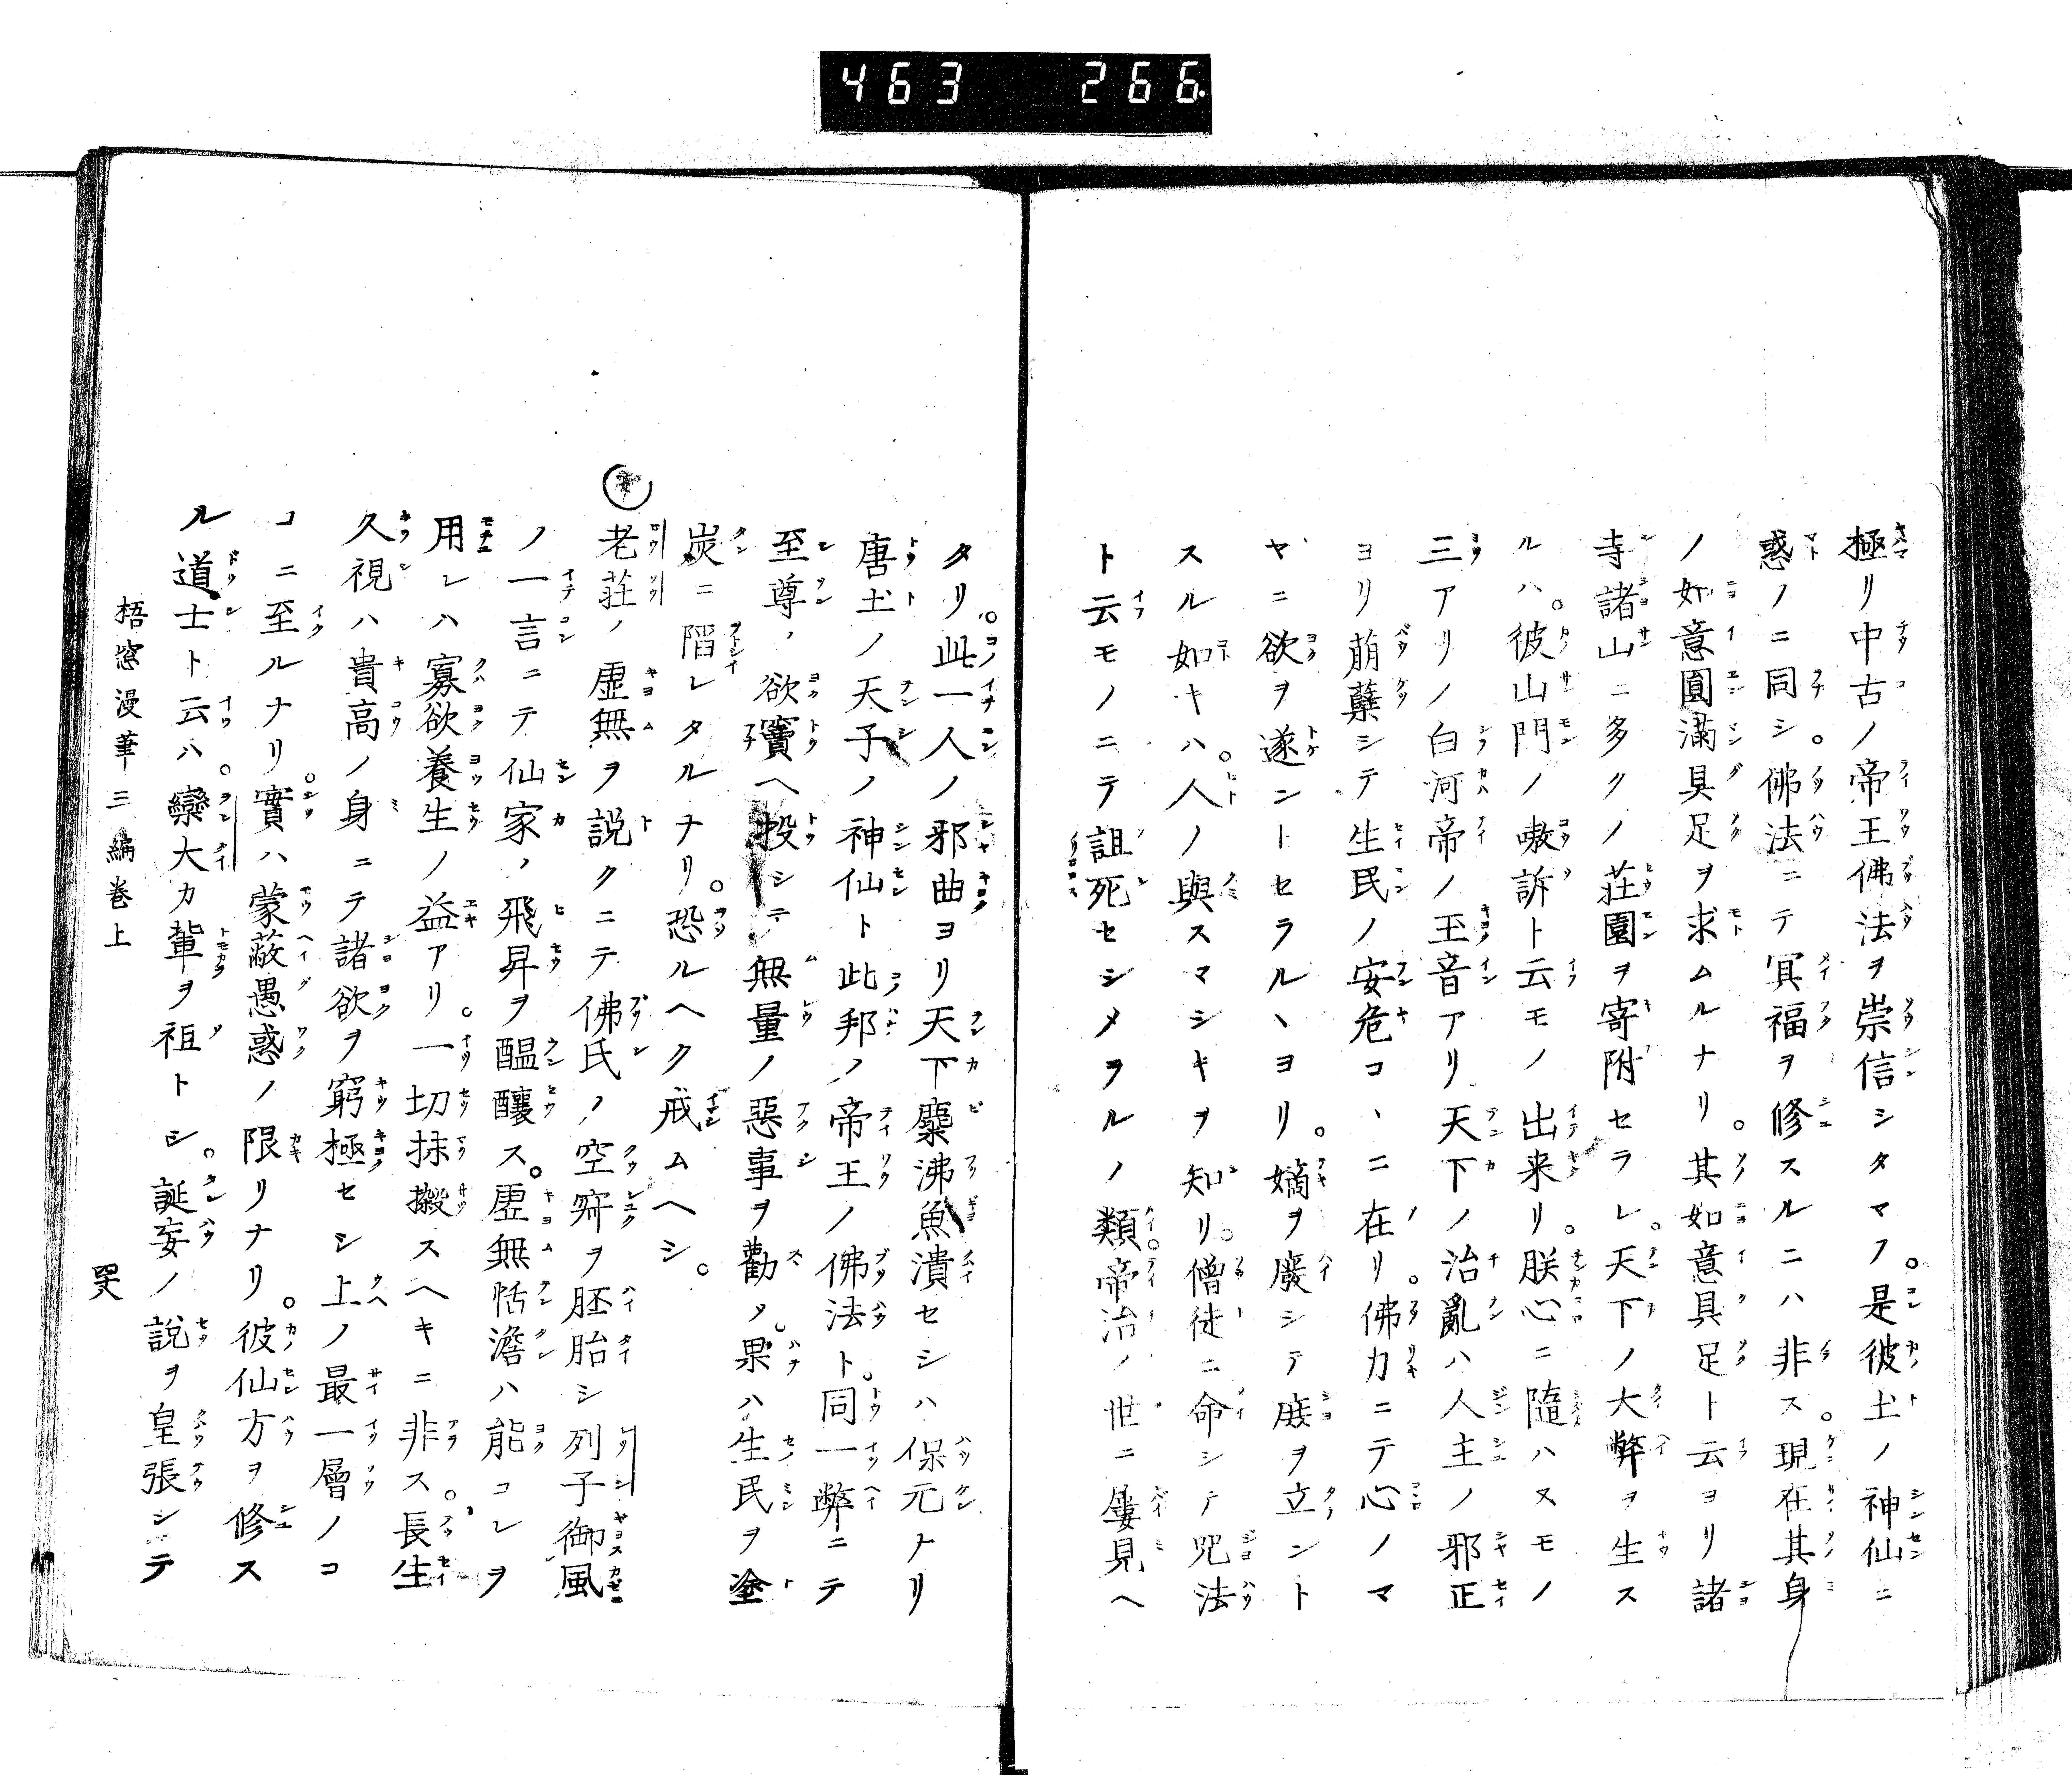 463 266
極リ中古ノ帝王佛法ヲ崇信シタマフ。是彼土ノ神仙ニ
惑ノニ同シ。佛法ニテ冥福ヲ修スルニハ非ス。現在其身
ノ如意圓滿具足ヲ求ムルナリ。其如意具足ト云ヨリ諸
寺諸山ニ多クノ荘園ヲ寄附セラレ。天下ノ大弊ヲ生ス
ルハ。彼山門ノ嗷訴ト云モノ出来リ。朕心ニ隨ハヌモノ
三アリノ白河帝ノ玉音アリ天下ノ治亂ハ人主ノ邪正
ヨリ萠蘖シテ生民ノ安危コヽニ在リ。佛力ニテ心ノマ
ヽニ欲ヲ遂ントセラルヽヨリ。嫡ヲ廢シテ庶ヲ立ント
スル如キハ。人ノ與スマシキヲ知リ。僧徒ニ命シテ咒法
ト云モノニテ詛死セシメヲルノ類。帝治ノ世ニ屢見ヘ
タリ。此一人ノ邪曲ヨリ天下糜沸魚潰セシハ保元ナリ
唐土ノ天子ノ神仙ト此邦ノ帝王ノ佛法ト。同一弊ニテ
至尊ノ欲竇ヘ投シテ無量ノ惡事ヲ勸メ。果ハ生民ヲ塗
炭ニ陷レタルナリ。恐ルヘク戒ムヘシ。
老荘ノ虚無ヲ説クニテ佛氏ノ空寂ヲ胚胎シ列子御風
ノ一言ニテ仙家ノ飛昇ヲ醞釀ス。虚無恬澹ハ能コレヲ
用レハ寡欲養生ノ益アリ。一切抹摋スヘキニ非ス。長生
久視ハ貴高ノ身ニテ諸欲ヲ窮極セシ上ノ最一層ノコ
コニ至ルナリ。實ハ蒙蔽愚惑ノ限リナリ。彼仙方ヲ修ス
ル道士ト云ハ。欒大カ輩ヲ祖トシ。誕妄ノ説ヲ皇張シテ
梧窓漫筆三編巻上